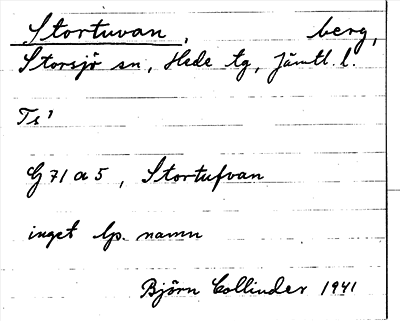 Stortuvan, berg,
Storsjö sn, Hede tg, Jämtl. l.
Ts¹
G 71 a 5, Stortufvan
inget lp. namn
Björn Collinder 1941